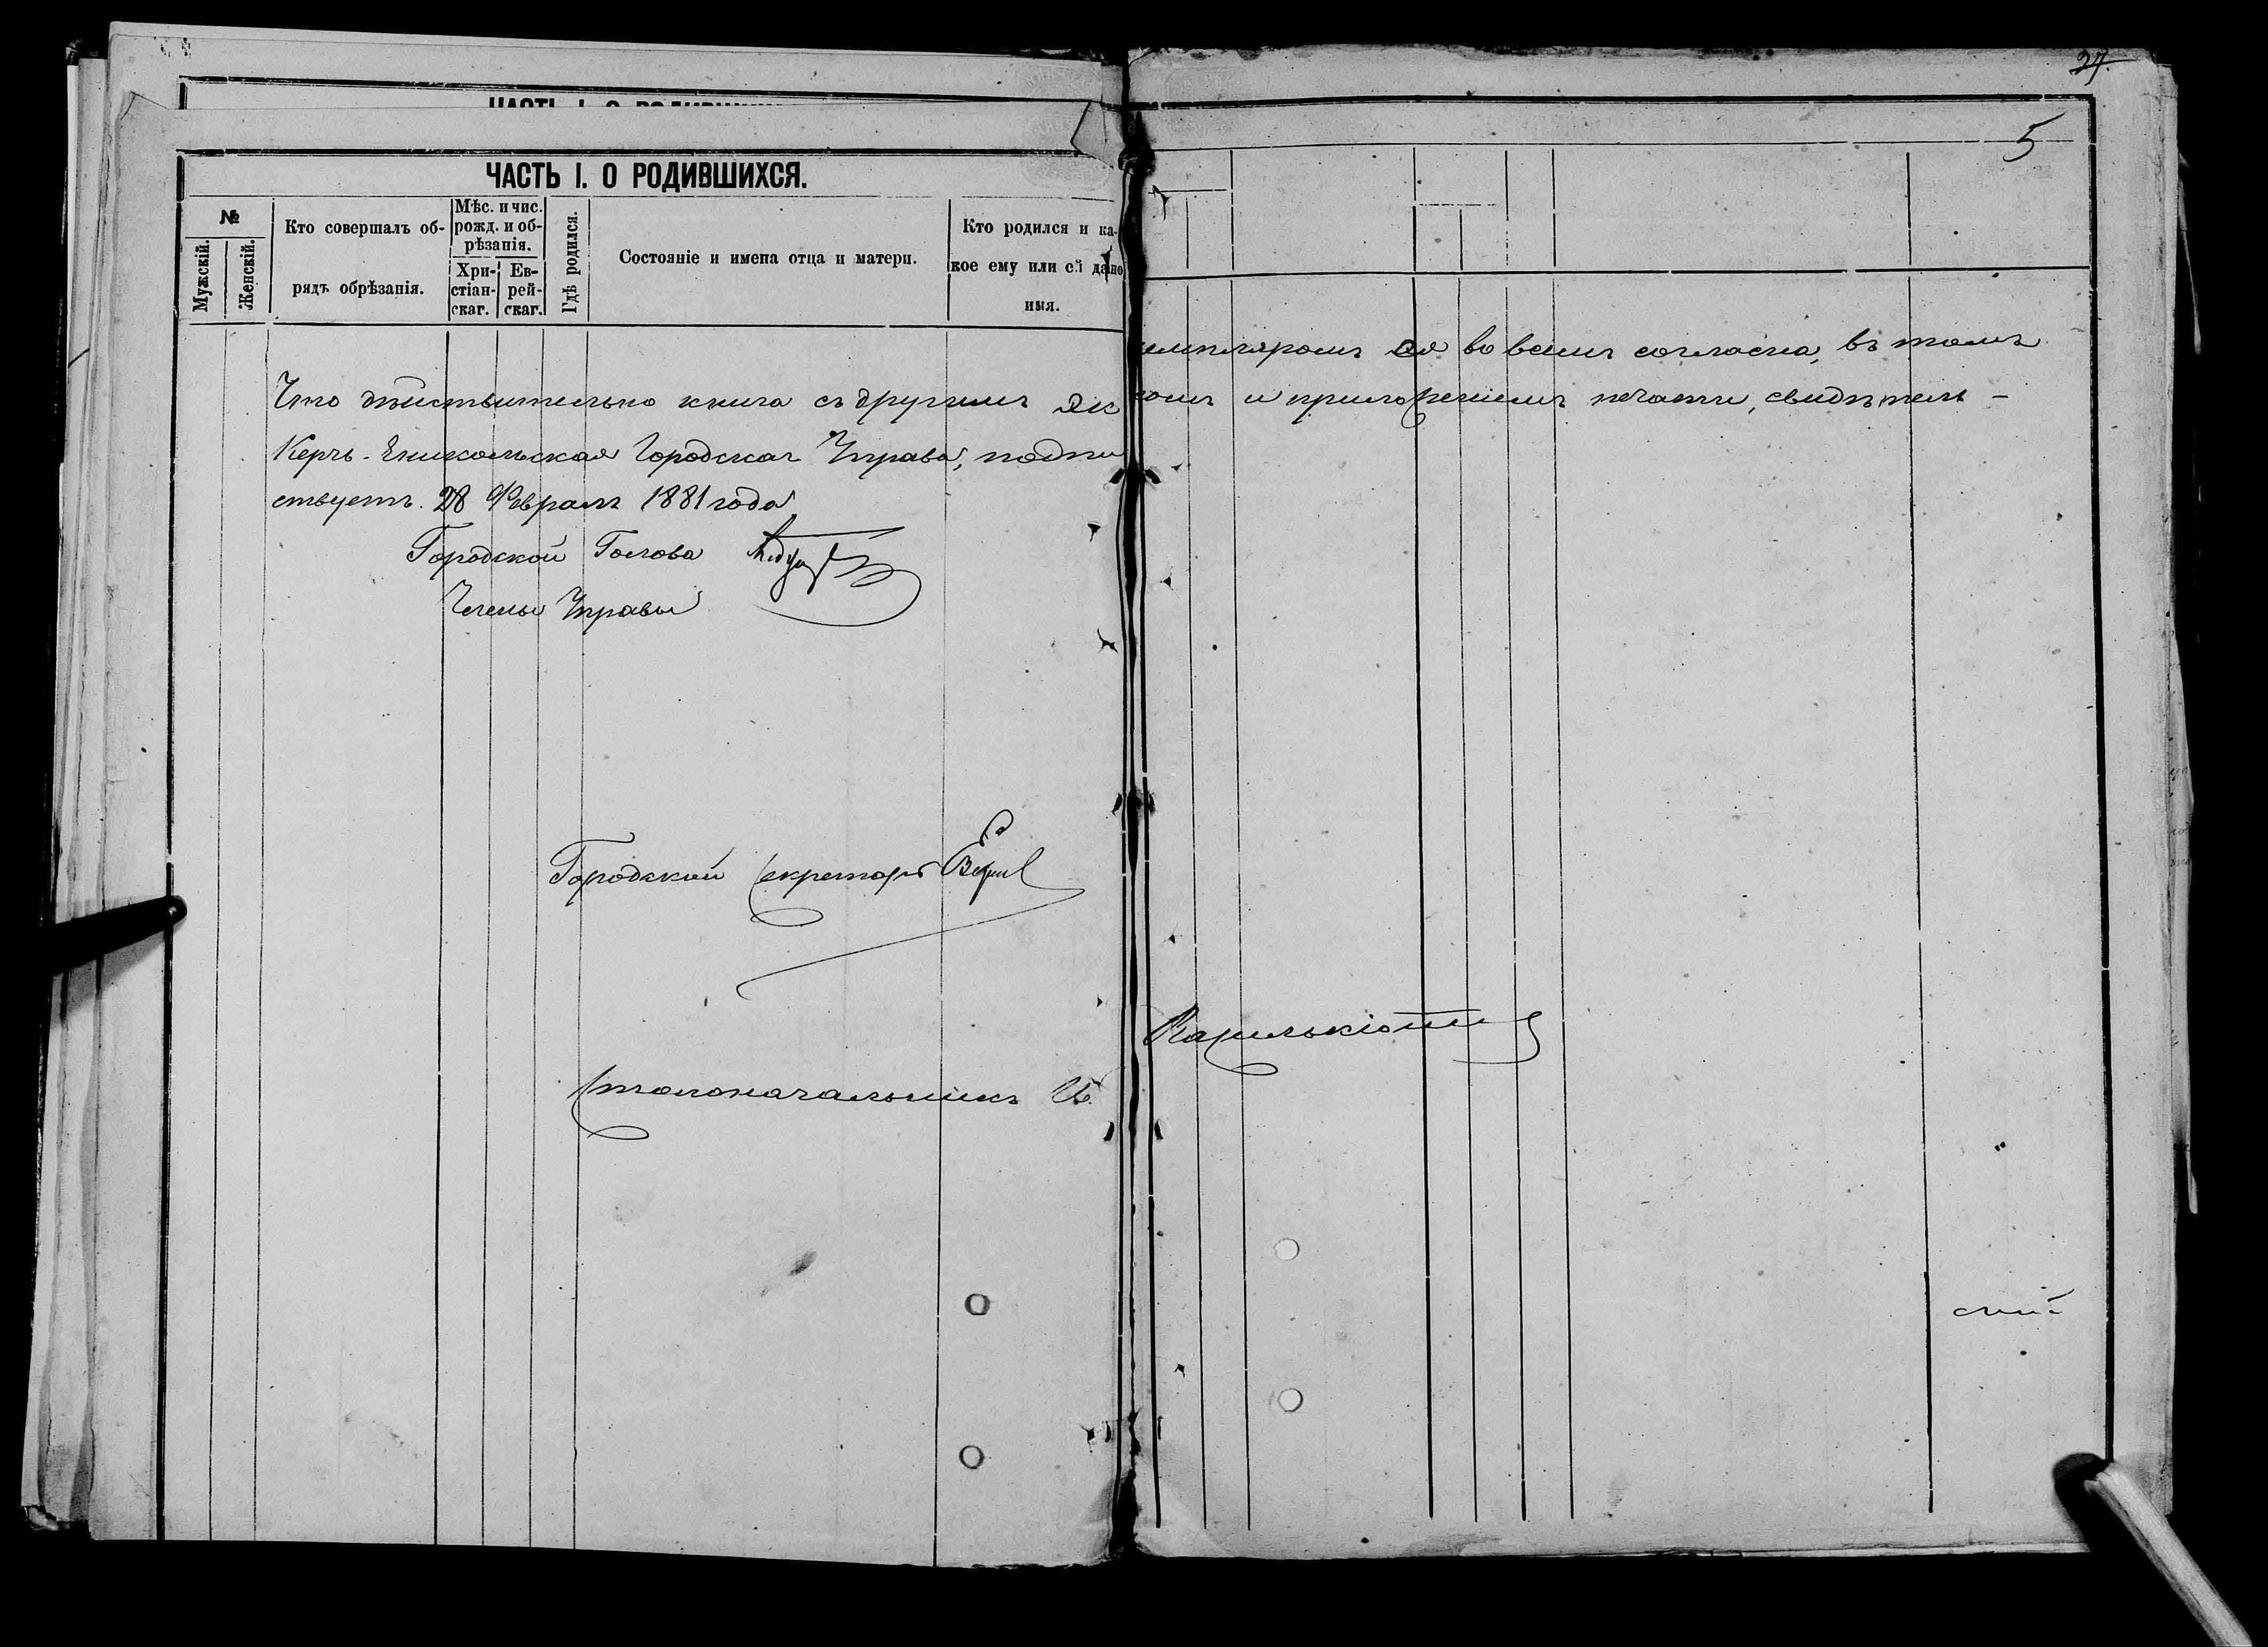 27.
5
ЧАСТЬ I. О РОДИВШИХСЯ.
№
Мужскій.
Женскій.
Кто совершалъ об-
рядъ обрѣзанія.
Мѣс. и чис.
рожд. и об-
рѣзанія.
Хри-
стіан-
скаг.
Ев-
рей-
скаг.
Гдѣ родился.
Состояніе и имена отца и матери.
Кто родился и ка-
кое ему или ей дано
имя.
Что дѣйствительно книга съ другимъ эк земпляромъ ея во всемъ согласна, въ томъ
Керчь-Еникольская Городская Управа, подпи сомъ и приложеніемъ печати, свидѣтель-
ствуетъ. 28 Февраля 1881 года
Городской Голова
Члены Управы
Городской Секретарь
Столоначальникъ